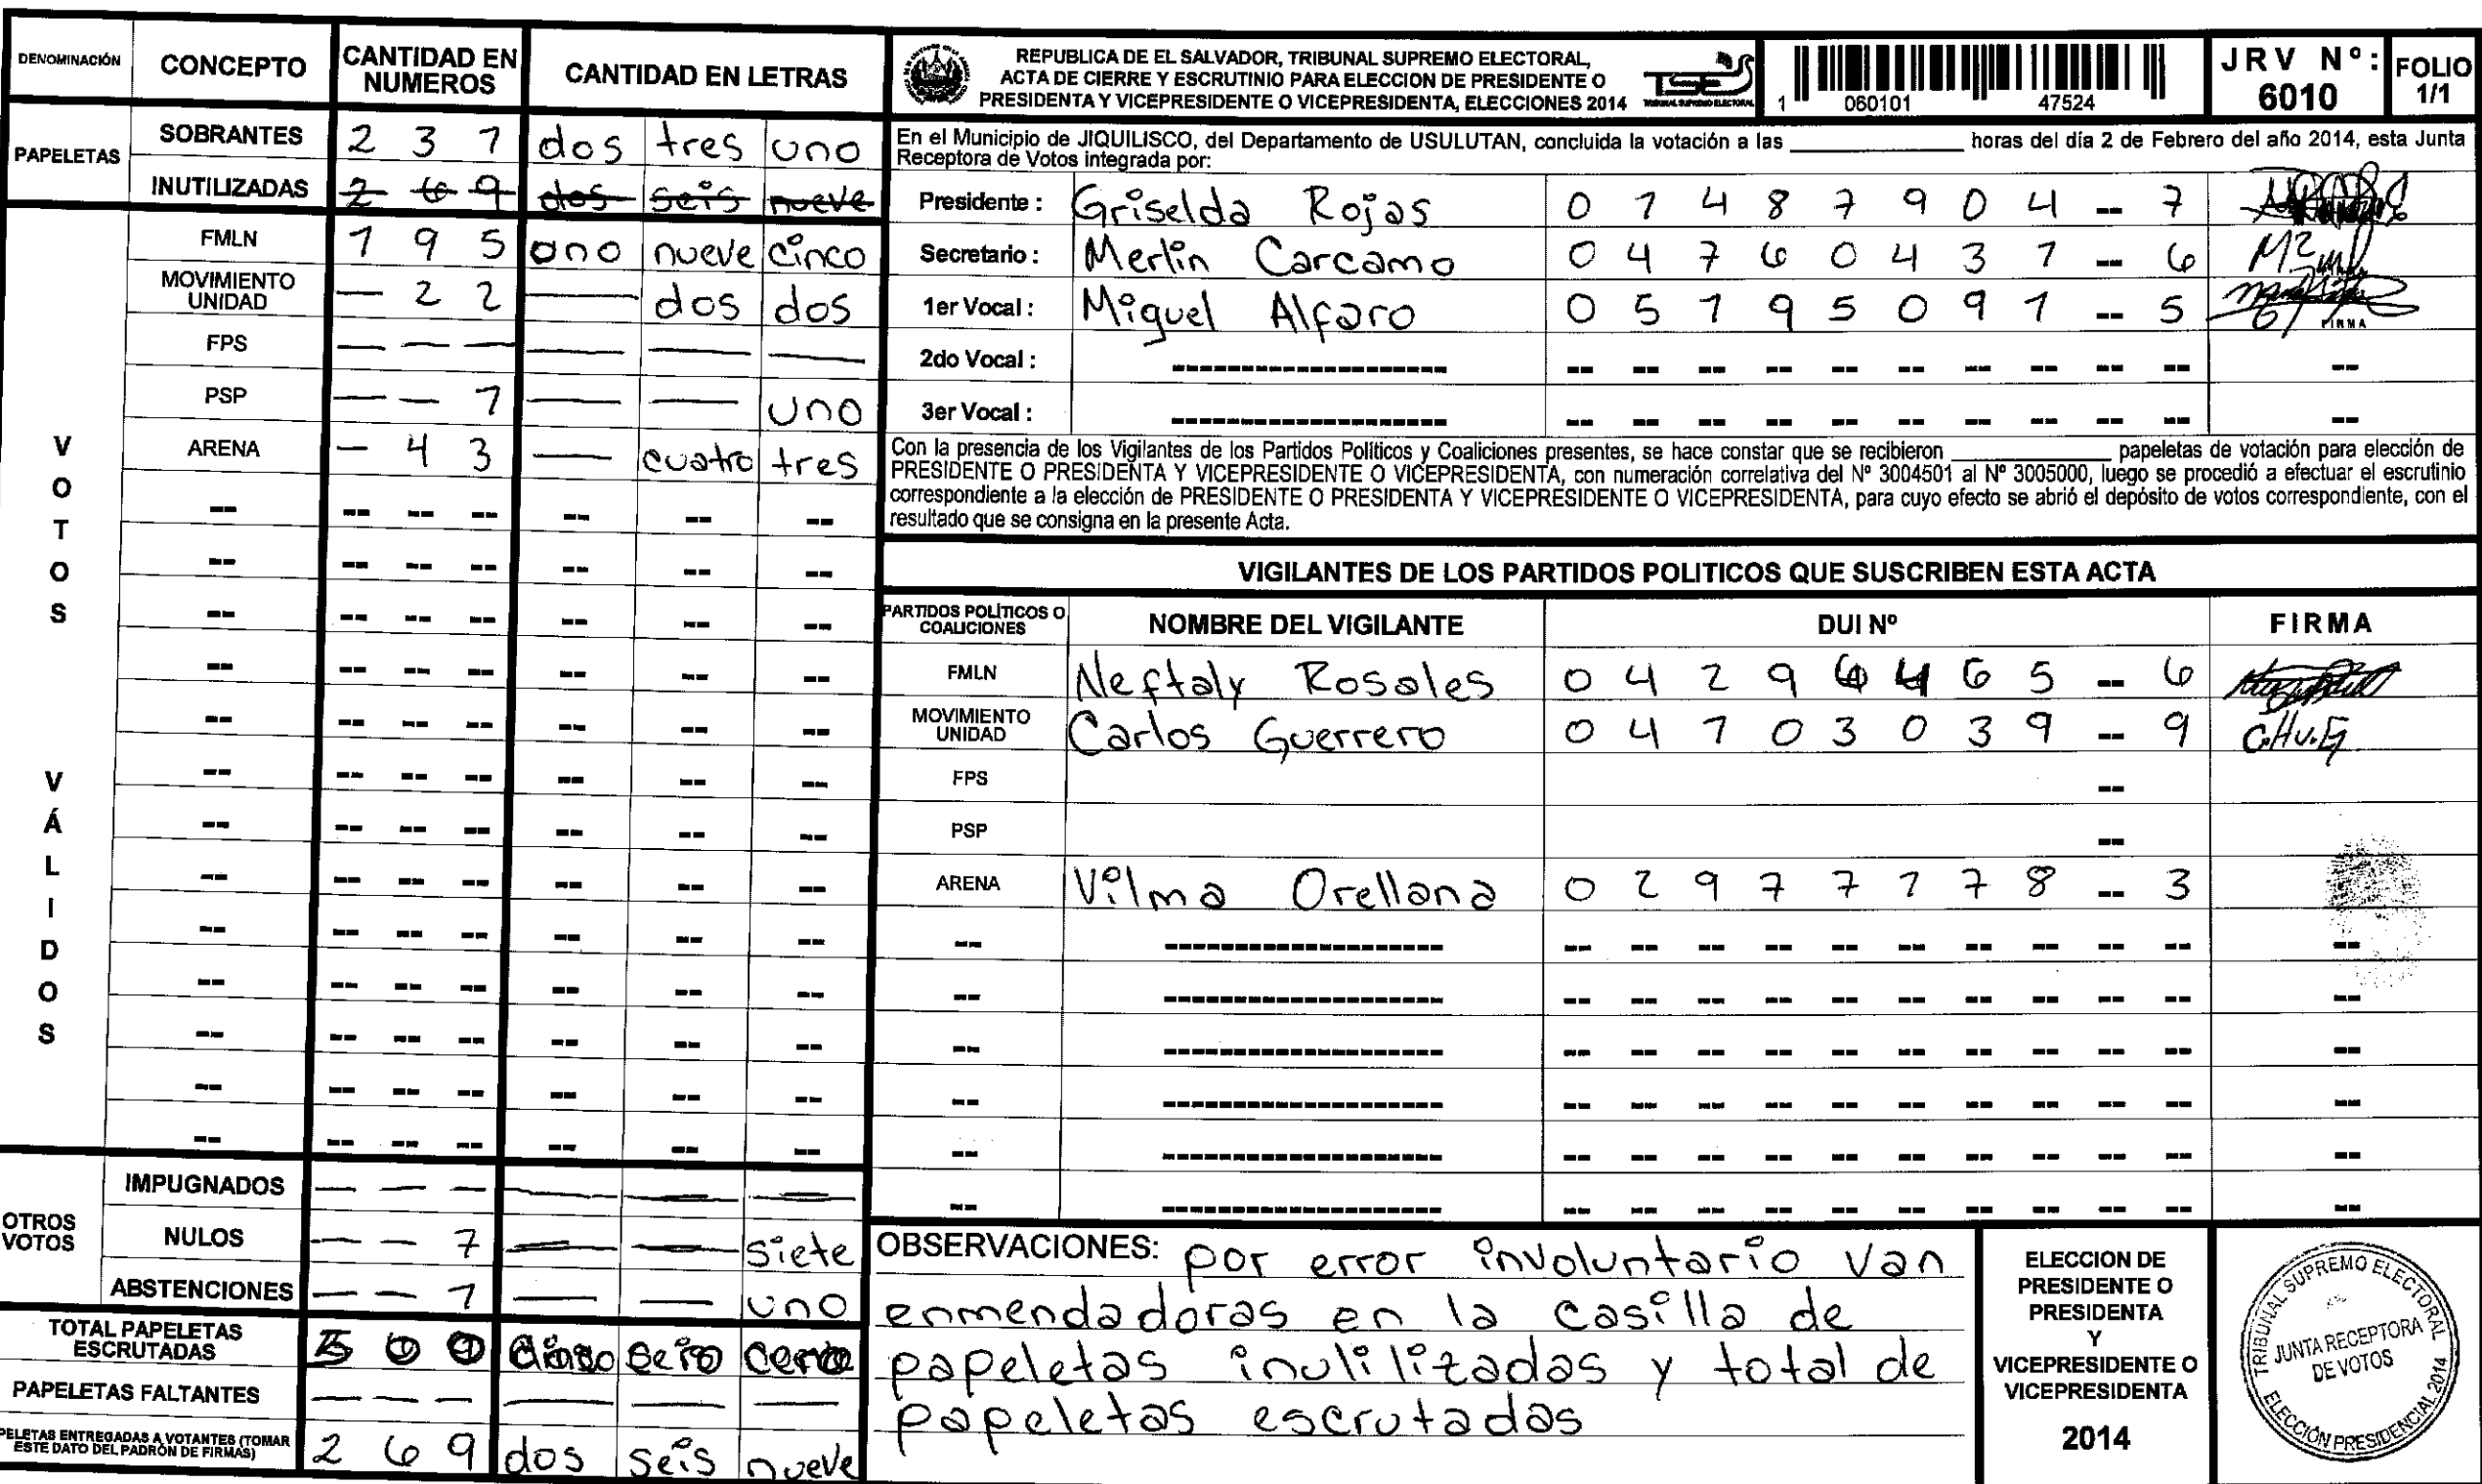 DENOMINACIÓN CONCEPTO CANTIDAD EN NUMEROS CANTIDAD EN LETRAS
PAPELETAS
SOBRANTES 2 3 1 dos tres uno
INUTILIZADAS 2 6 9 dos seis nueve
VOTOS VÁLIDOS
FMLN 1 9 5 uno nueve cinco
MOVIMIENTO UNIDAD — 2 2 — dos dos
FPS — — — — — —
PSP — — 1 — — uno
ARENA — 4 3 — cuatro tres
OTROS VOTOS
IMPUGNADOS — — — — — —
NULOS — — 7 — — siete
ABSTENCIONES — — 1 — — uno
TOTAL PAPELETAS ESCRUTADAS 5 0 0 cero
PAPELETAS FALTANTES — — — — — —
PELETAS ENTREGADAS A VOTANTES (TOMAR ESTE DATO DEL PADRÓN DE FIRMAS) 2 6 9 dos seis nueve
REPUBLICA DE EL SALVADOR, TRIBUNAL SUPREMO ELECTORAL,
ACTA DE CIERRE Y ESCRUTINIO PARA ELECCION DE PRESIDENTE O
PRESIDENTA Y VICEPRESIDENTE O VICEPRESIDENTA, ELECCIONES 2014
TSE
TRIBUNAL SUPREMO ELECTORAL
1 060101 47524
JRV Nº: 6010
FOLIO 1/1
En el Municipio de JIQUILISCO, del Departamento de USULUTAN, concluida la votación a las ____ horas del día 2 de Febrero del año 2014, esta Junta
Receptora de Votos integrada por:
Presidente : Griselda Rojas 0 1 4 8 7 9 0 4 -- 7
Secretario : Merlin Carcamo 0 4 7 6 0 4 3 1 -- 6
1er Vocal : Miguel Alfaro 0 5 1 9 5 0 9 1 -- 5
FIRMA
2do Vocal :
3er Vocal :
Con la presencia de los Vigilantes de los Partidos Políticos y Coaliciones presentes, se hace constar que se recibieron ____ papeletas de votación para elección de
PRESIDENTE O PRESIDENTA Y VICEPRESIDENTE O VICEPRESIDENTA, con numeración correlativa del Nº 3004501 al Nº 3005000, luego se procedió a efectuar el escrutinio
correspondiente a la elección de PRESIDENTE O PRESIDENTA Y VICEPRESIDENTE O VICEPRESIDENTA, para cuyo efecto se abrió el depósito de votos correspondiente, con el
resultado que se consigna en la presente Acta.
VIGILANTES DE LOS PARTIDOS POLITICOS QUE SUSCRIBEN ESTA ACTA
PARTIDOS POLÍTICOS O COALICIONES NOMBRE DEL VIGILANTE DUI Nº FIRMA
FMLN Neftaly Rosales 0 4 2 9 6 4 6 5 -- 6
MOVIMIENTO UNIDAD Carlos Guerrero 0 4 1 0 3 0 3 9 -- 9 C.Hv.G
FPS --
PSP --
ARENA Vilma Orellana 0 2 9 7 7 1 7 8 -- 3
OBSERVACIONES: por error involuntario van
enmendadoras en la casilla de
papeletas inulilizadas y total de
papeletas escrutadas
ELECCION DE
PRESIDENTE O
PRESIDENTA
Y
VICEPRESIDENTE O
VICEPRESIDENTA
2014
TRIBUNAL SUPREMO ELECTORAL
JUNTA RECEPTORA
DE VOTOS
ELECCIÓN PRESIDENCIAL 2014